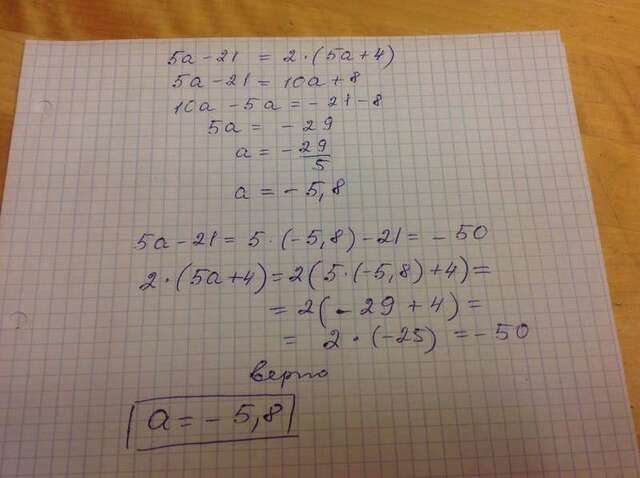 5a - 21 = 2·(5a+4)
5a - 21 = 10a + 8
10a - 5a = - 21 - 8
5a = - 29
a = - 29/5
a = - 5,8
5a - 21 = 5·(-5,8) - 21 = - 50
2·(5a+4) = 2(5·(-5,8)+4) =
= 2(- 29 + 4) =
= 2·(-25) = - 50
верно
a = - 5,8